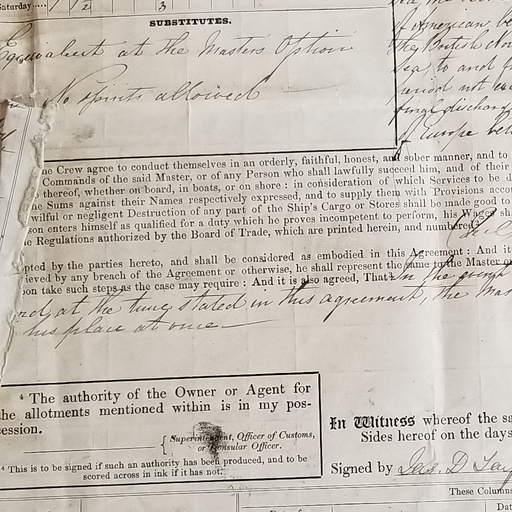 Saturday.... 1 2 3
SUBSTITUTES.
Equivalent at the Master's Option
No Spirits allowed
of American
the British No
Sea to and f
period not ex
final discharge
of Europe bet
ne Crew agree to conduct themselves in an orderly, faithful, honest, and sober manner, and to
Commands of the said Master, or of any Person who shall lawfully succeed him, and of their
thereof, whether on board, in boats, or on shore : in consideration of which Services to be d
he Sums against their Names respectively expressed, and to supply them with Provisions acco
wilful or negligent Destruction of any part of the Ship's Cargo or Stores shall be made good to
son enters himself as qualified for a duty which he proves incompetent to perform, his Wages sha
e Regulations authorized by the Board of Trade, which are printed herein, and numbered
pted by the parties hereto, and shall be considered as embodied in this Agreement : And it
ieved by any breach of the Agreement or otherwise, he shall represent the same to the Master or
on take such steps as the case may require : And it is also agreed, That in the
at the time stated in this agreement, the Mas
his place at once
* The authority of the Owner or Agent for
the allotments mentioned within is in my pos-
session.
Superintendent, Officer of Customs,
or Consular Officer.
* This is to be signed if such an authority has been produced, and to be
scored across in ink if it has not.
In Witness whereof the sa
Sides hereof on the days
Signed by Jas. D Tay
These Columns
Dat